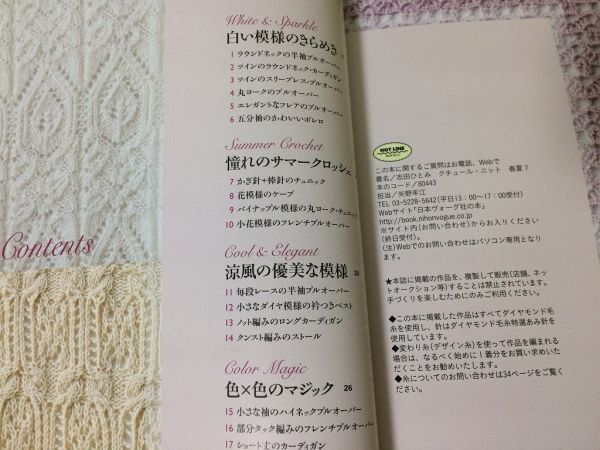 Contents
White & Sparkle
白い模様のきらめき
1 ラウンドネックの半袖プルオーバー
2 ツインのラウンドネック・カーディガン
3 ツインのスリーブレス・プルオーバー
4 丸ヨークのプルオーバー
5 エレガントなフレアのプルオーバー
6 五分袖のかわいいボレロ
Summer Crochet
憧れのサマークロッシェ
7 かぎ針+棒針のチュニック
8 花模様のケープ
9 パイナップル模様の丸ヨーク・チュニック
10 小花模様のフレンチプルオーバー
Cool & Elegant
涼風の優美な模様 20
11 毎段レースの半袖プルオーバー
12 小さなダイヤ模様の衿つきベスト
13 ノット編みのロングカーディガン
14 クンスト編みのストール
Color Magic
色×色のマジック 26
15 小さな袖のハイネックプルオーバー
16 部分タック編みのフレンチプルオーバー
17 ショート丈のカーディガン
HOT LINE
ホットライン
この本に関するご質問はお電話、Webで
書名/志田ひとみ クチュール・ニット 春夏7
本のコード/80443
担当/矢野年江
TEL 03-5228-5642(平日13:00〜17:00受付)
Webサイト「日本ヴォーグ社の本」
http://book.nihonvogue.co.jp
※サイト内(お問い合わせ)からお入りください
(終日受付)。
(注)Webでのお問い合わせはパソコン専用となり
ます。
★本誌に掲載の作品を、複製して販売(店舗、ネッ
トオークション等)することは禁止されています。
手づくりを楽しむためにのみご利用ください。
◆この本に掲載した作品はすべてダイヤモンド毛
糸を使用し、針はダイヤモンド毛糸特選あみ針を
使用しています。
◆変わり糸(デザイン糸)を使って作品を編まれる
場合は、なるべく始めに1着分をお買い求めいた
だくことをお勧めいたします。
◆糸についてのお問い合わせは34ページをご覧く
ださい。